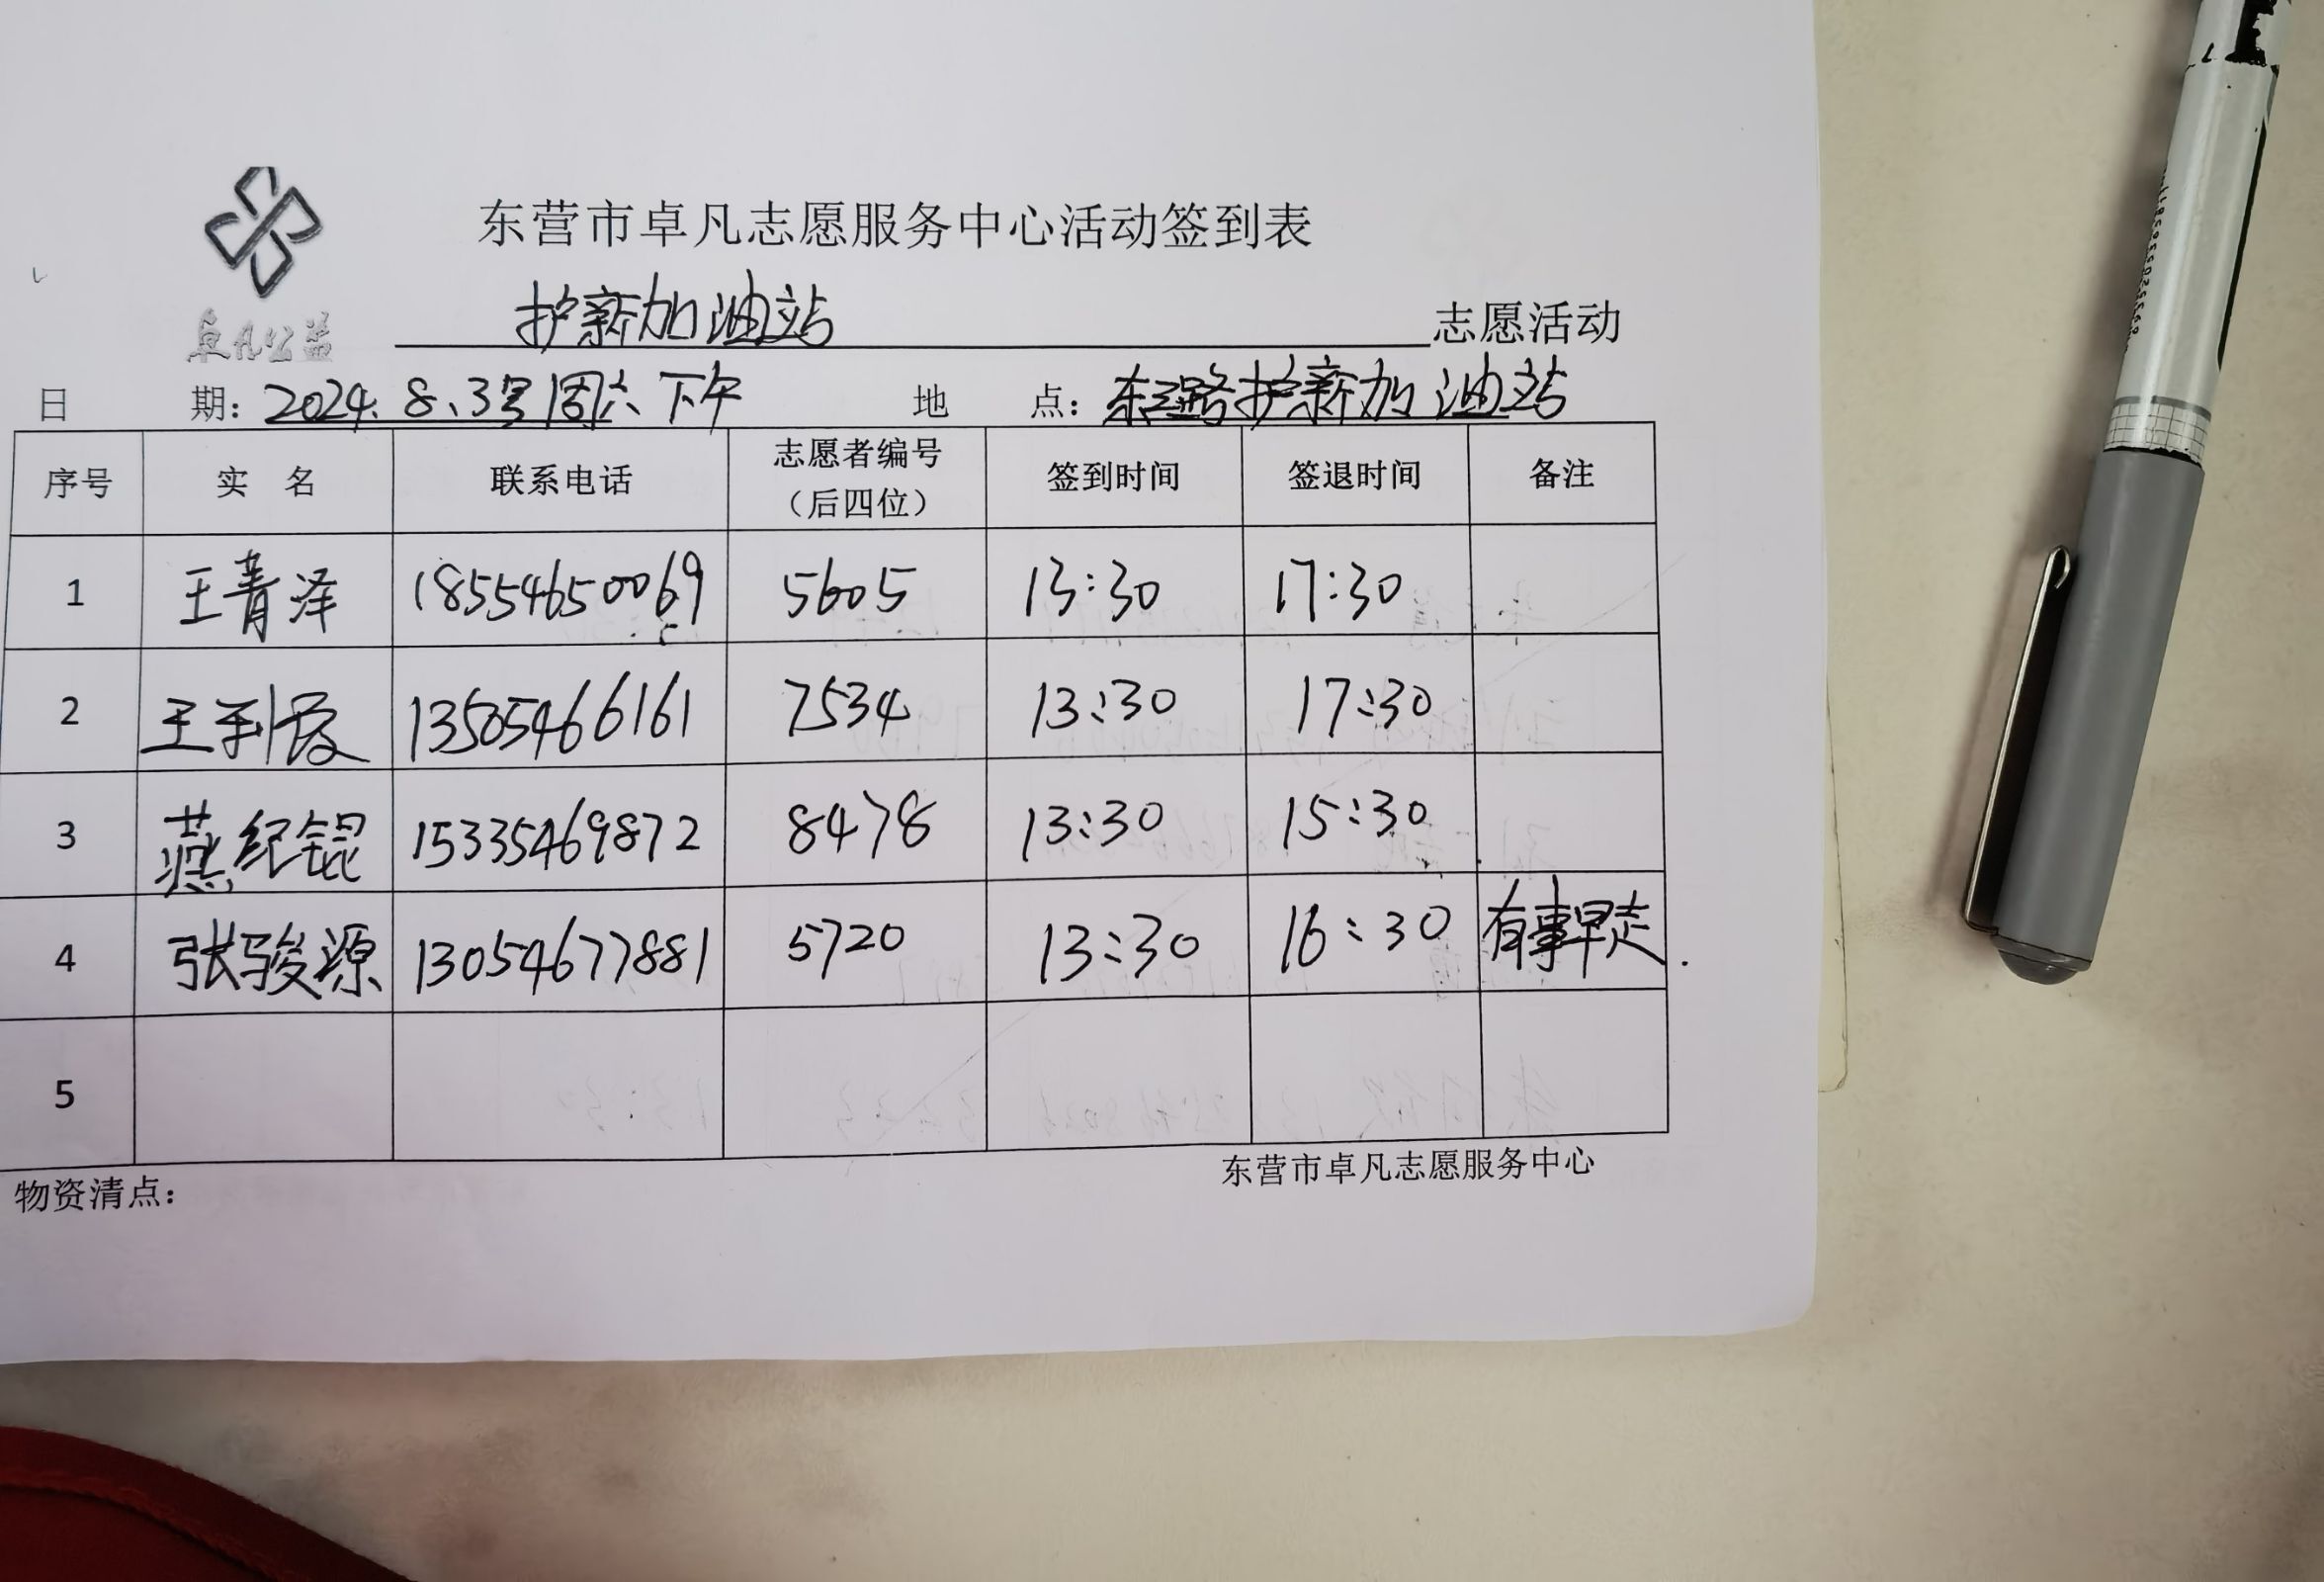 东营市卓凡志愿服务中心活动签到表
卓凡公益
护新加油站 志愿活动
日 期：2024.8.3号周六下午 地 点：东三路护新加油站
序号 实 名 联系电话 志愿者编号（后四位） 签到时间 签退时间 备注
1 王青泽 18554650069 5605 13:30 17:30
2 王利霞 13505466161 7534 13:30 17:30
3 燕纪锟 15335469872 8478 13:30 15:30
4 张骏源 13054677881 5720 13:30 16:30 有事早走.
5
东营市卓凡志愿服务中心
物资清点：